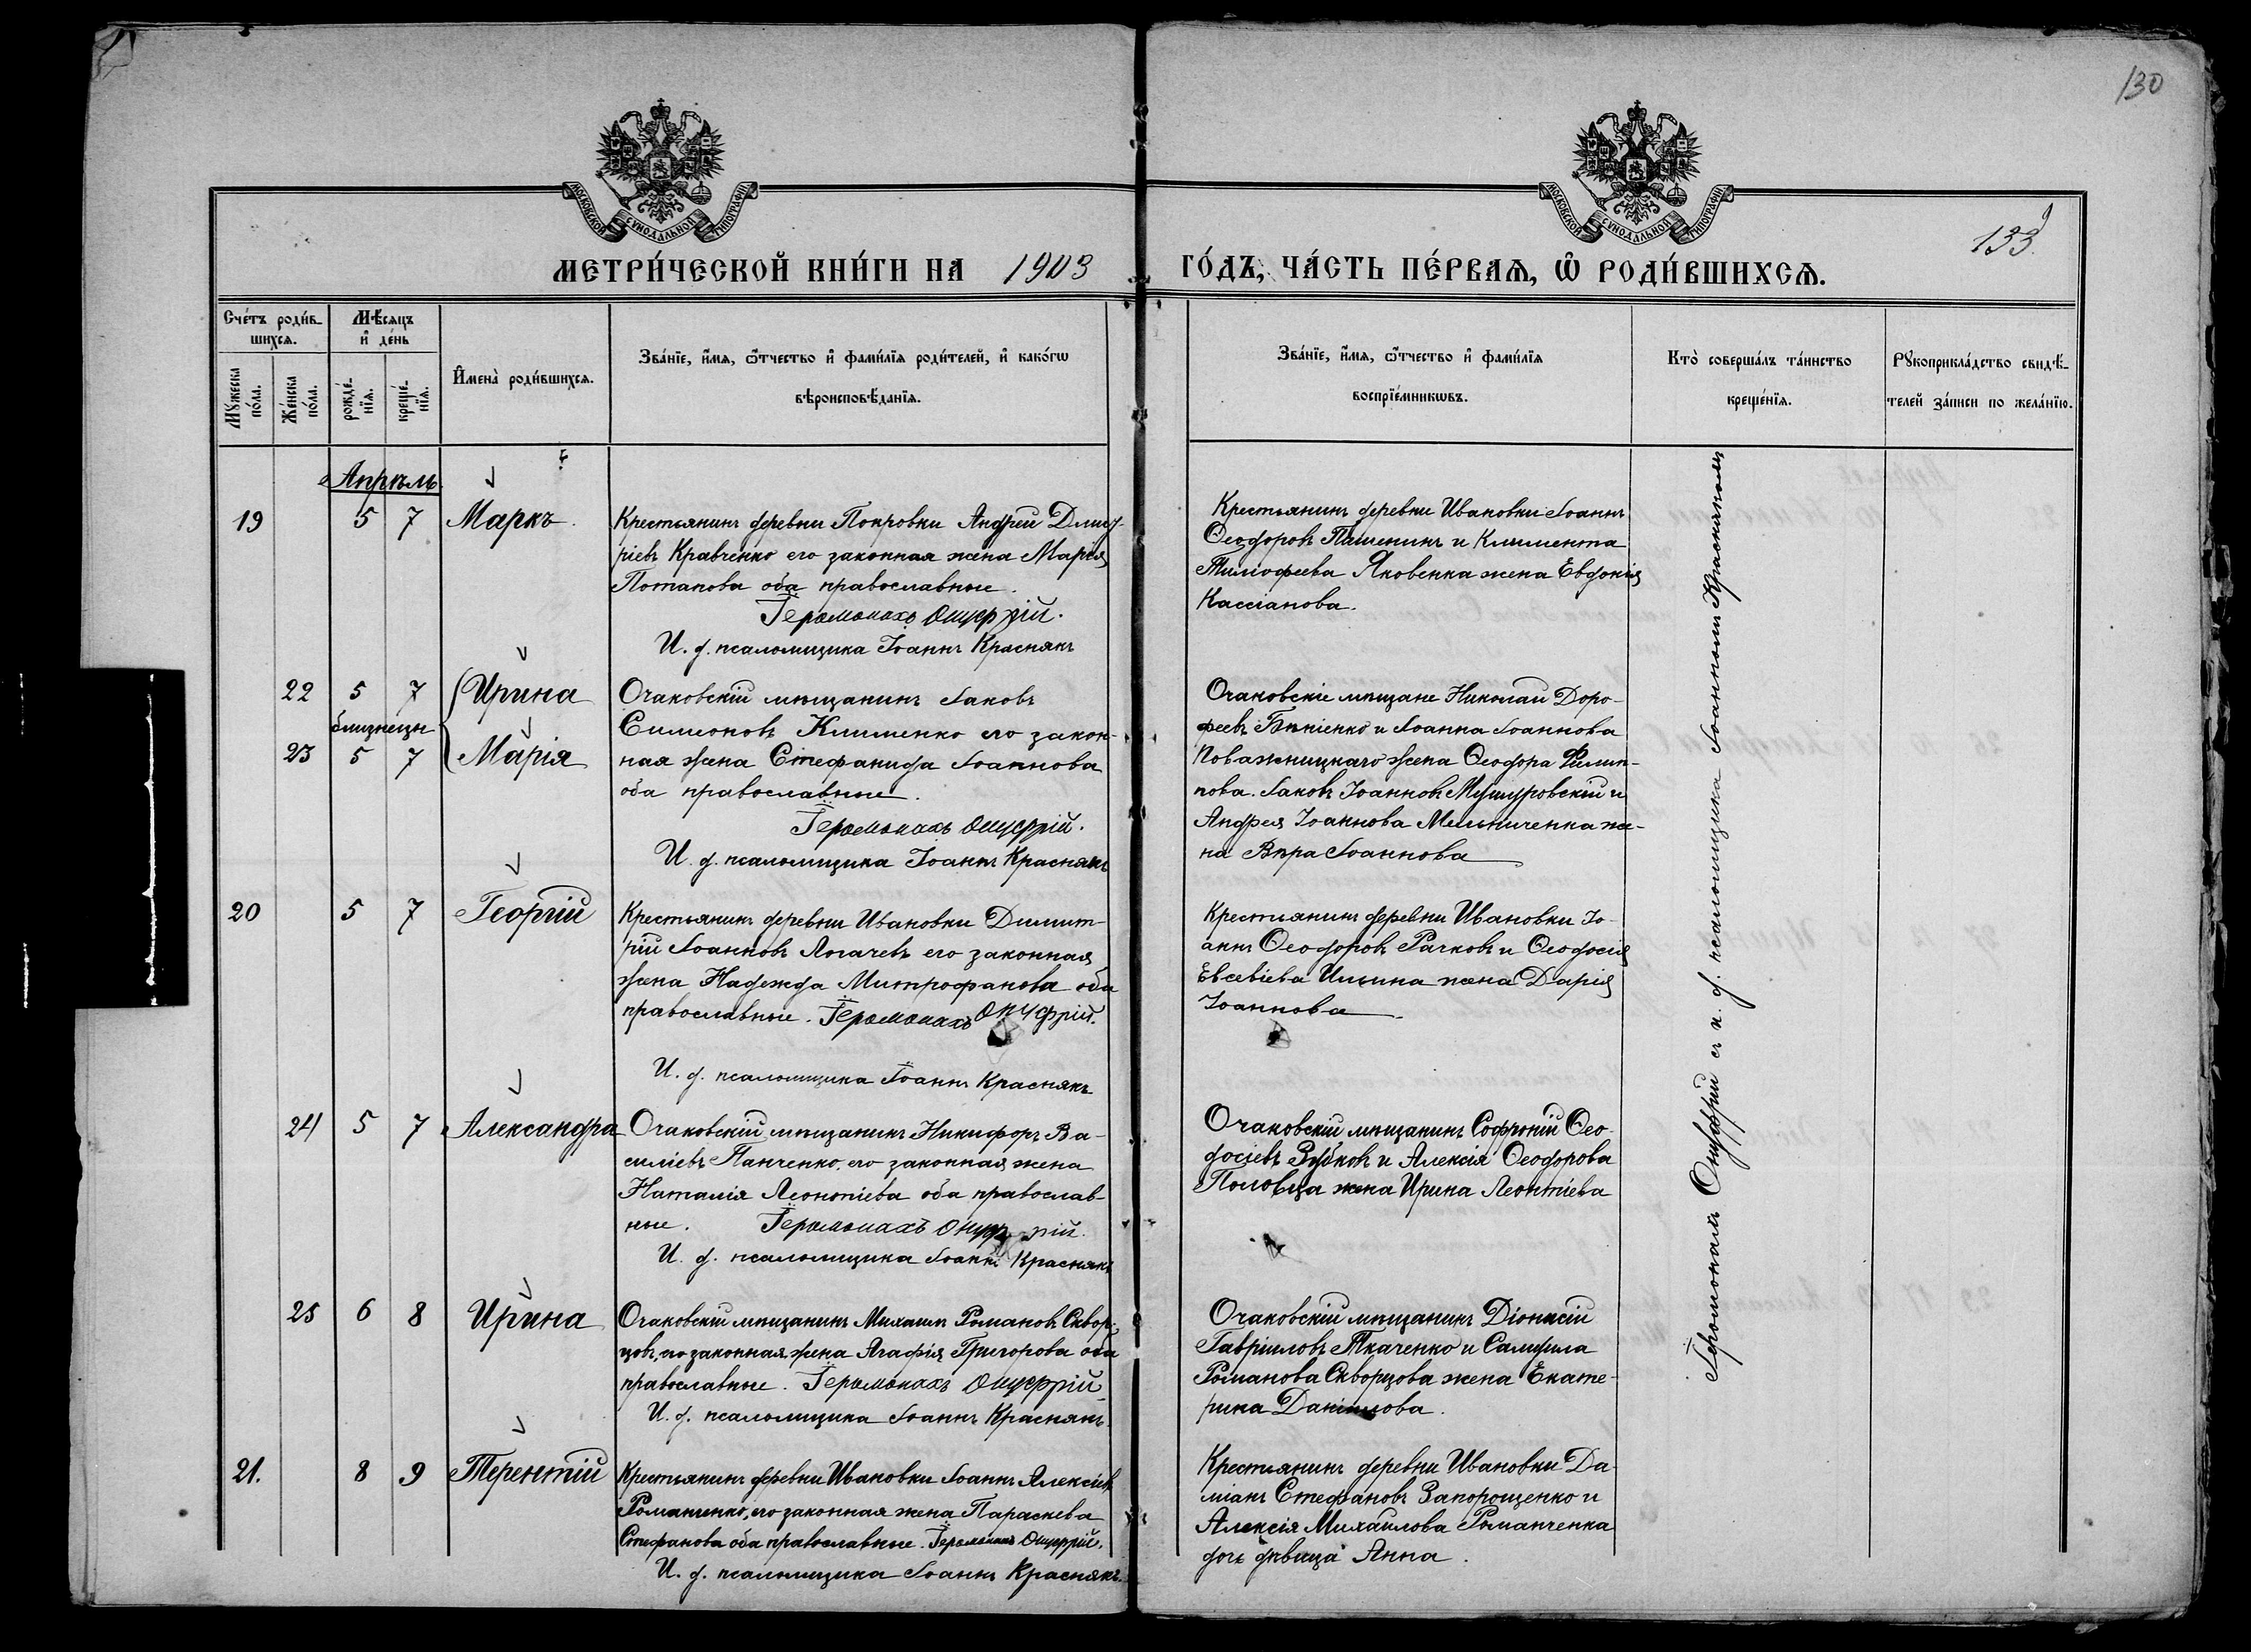 130
133
МОСКОВСКОЙ СѴНОДАЛЬНОЙ ТИПОГРАФІИ
МОСКОВСКОЙ СѴНОДАЛЬНОЙ ТИПОГРАФІИ
МЕТРИ́ЧЕСКОЙ КНИ́ГИ НА 1903 ГО́ДЪ, ЧА́СТЬ ПЕ́РВАѦ, Ѡ҆ РОДИ́ВШИХСѦ.
Сче́тъ роди́в-
шихсѧ.
Мꙋжеска по́ла.
Же́нска по́ла.
Мѣ́сѧцъ и҆ де́нь
рожде́-
нїѧ.
креще́-
нїѧ.
И҆мена̀ роди́вшихсѧ.
Зва́нїе, и҆́мѧ, ѻ҆́тчество и҆ фами́лїѧ роди́телей, и҆ како́гѡ
вѣроисповѣ́данїѧ.
Зва́нїе, и҆́мѧ, ѻ҆́тчество и҆ фами́лїѧ
воспрїе́мникѡвъ.
Кто̀ соверша́лъ та́инство
креще́нїѧ.
Рꙋкоприкла́дство свидѣ́-
телей за́писи по жела́нїю.
Апрѣль
19 5 7 Маркъ
Крестьянинъ деревни Покровки Андрей Димит-
ріевъ Кравченко его законная жена Марія
Потапова оба православные.
Іеромонахъ Онуфрій.
И. д. псаломщика Іоаннъ Краснякъ
Крестьянинъ деревни Ивановки Іоаннъ
Ѳеодоровъ Пашенинъ и Климента
Тимофеева Яковенка жена Евдокія
Кассіанова.
22 5 7 Ирина
близнецы
23 5 7 Марія
Очаковскій мѣщанинъ Іаковъ
Симеоновъ Клименко его закон-
ная жена Стефанида Іоаннова
оба православные.
Іеромонахъ Онуфрій.
И. д. псаломщика Іоаннъ Краснякъ
Очаковскіе мѣщане Николай Доро-
феевъ и Іоанна Іоаннова
Поважницкаго жена Ѳеодора Филип-
пова. Іаковъ Іоанновъ и
Андрея Іоаннова Мельниченка же-
на Вѣра Іоаннова
20 5 7 Георгій
Крестьянинъ деревни Ивановки Димит-
рій Іоанновъ Логачевъ его законная
жена Надежда Митрофанова оба
православные. Іеромонахъ Онуфрій.
И. д. псаломщика Іоаннъ Краснякъ
Крестьянинъ деревни Ивановки Іо-
аннъ Ѳеодоровъ Рачковъ и Ѳеодосія
Евсевіева Ильина жена Дарія
Іоаннова
24 5 7 Александра
Очаковскій мѣщанинъ Никифоръ Ва-
силіевъ Панченко, его законная жена
Наталія Леонтіева оба православ-
ные. Іеромонахъ Онуфрій.
И. д. псаломщика Іоаннъ Краснякъ
Очаковскій мѣщанинъ Софроній Ѳео-
досіевъ Зубковъ и Алексія Ѳеодорова
Половца жена Ирина Леонтіева
25 6 8 Ирина
Очаковскій мѣщанинъ Михаилъ Романовъ Сквор-
цовъ, его законная жена Агафія Григорова оба
православные. Іеромонахъ Онуфрій
И. д. псаломщика Іоаннъ Краснякъ.
Очаковскій мѣщанинъ Діонисій
Гавріиловъ Ткаченко и Самуила
Романова Скворцова жена Екате-
рина Даніилова.
21. 8 9 Терентій
Крестьянинъ деревни Ивановки Іоаннъ Алексіевъ
Романченко, его законная жена Параскева
Стефанова оба православные. Іеромонахъ Онуфрій.
И. д. псаломщика Іоаннъ Краснякъ.
Крестьянинъ деревни Ивановки Да-
міанъ Стефановъ Запорощенко и
Алексія Михайлова Романченка
дочь дѣвица Анна.
Іеромонахъ Онуфрій съ и. д. псаломщика Іоанномъ Краснякомъ